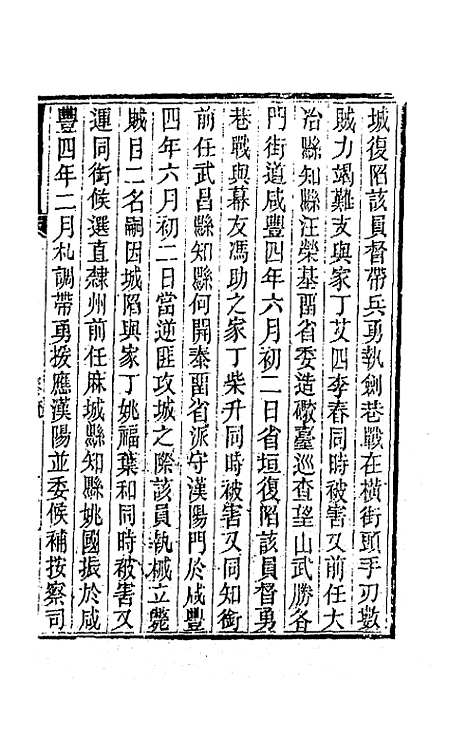 城復陷該員督帶兵勇執劍巷戰在橫街頭手刃數
賊力竭難支與家丁艾四李春同時被害又前任大
冶縣知縣汪榮基畱省委造礮臺巡查望山武勝各
門街道咸豐四年六月初二日省垣復陷該員督勇
巷戰與幕友馮助之家丁柴升同時被害又同知銜
前任武昌縣知縣何開泰畱省派守漢陽門於咸豐
四年六月初二日當逆匪攻城之際該員執械立斃
賊目二名嗣因城陷與家丁姚福葉和同時被害又
運同銜候選直隸州前任麻城縣知縣姚國振於咸
豐四年二月札調帶勇援應漢陽並委候補按察司